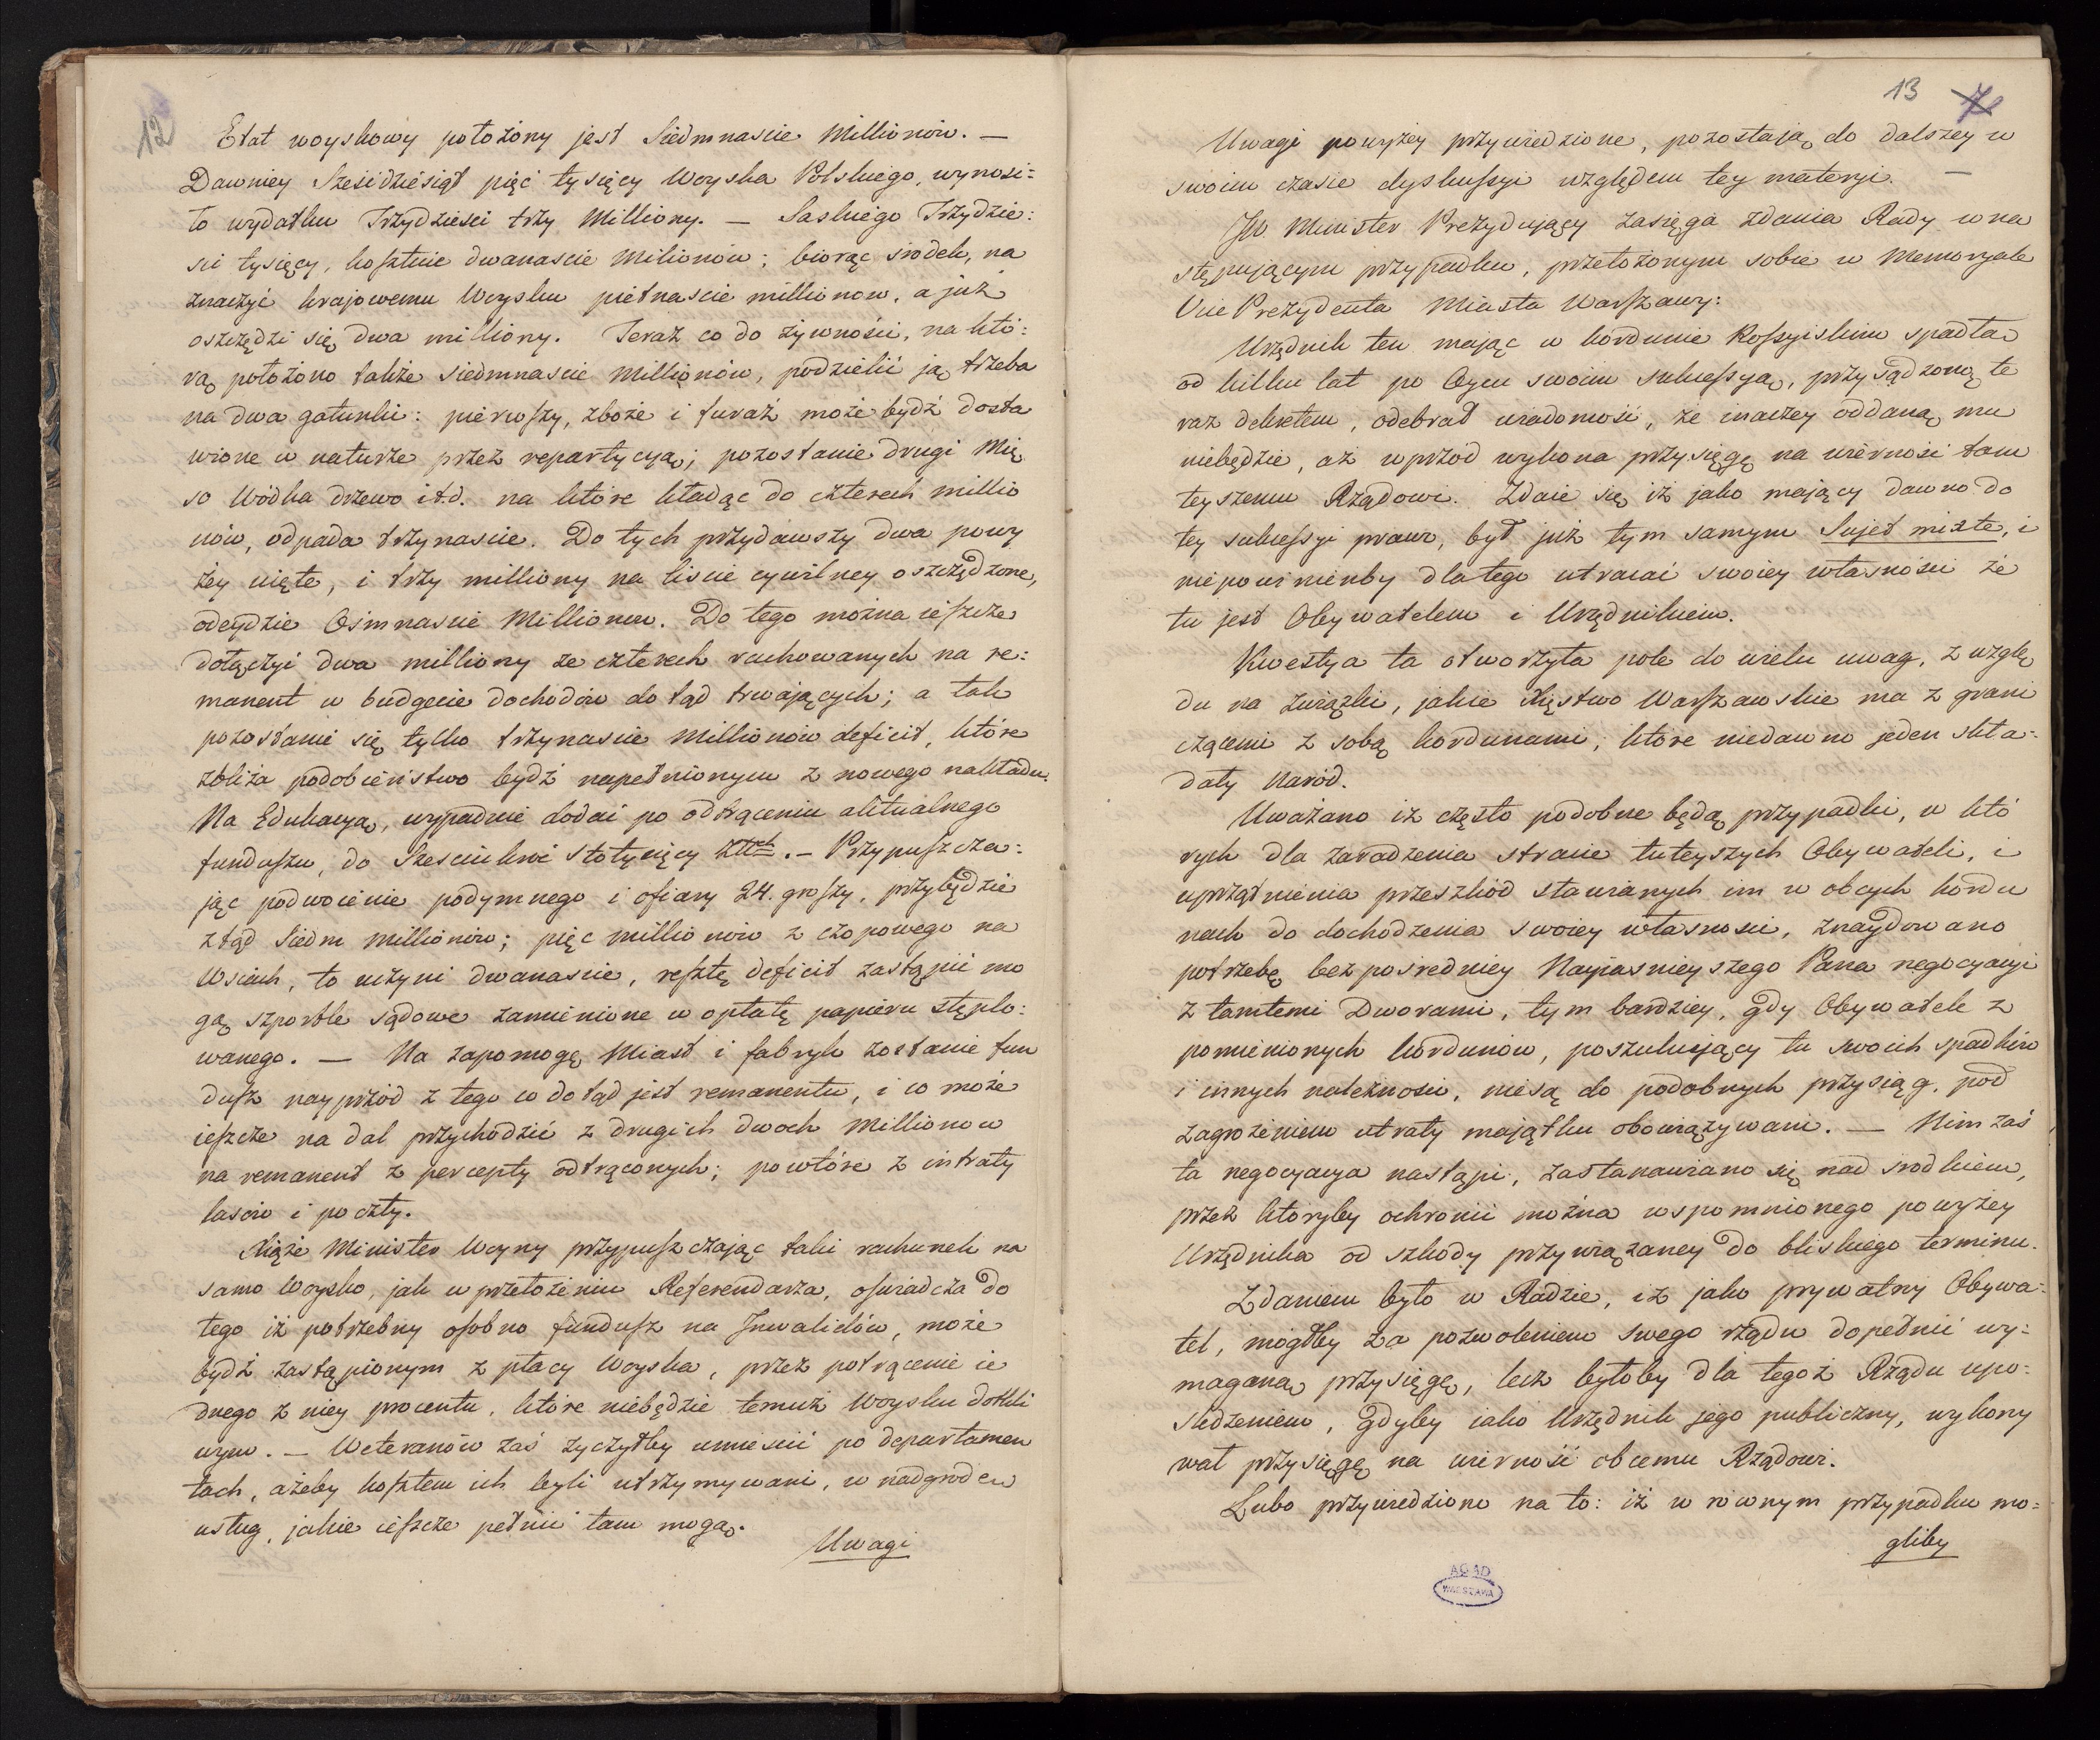 12
Etat woyskowy położony jest Siedmnascie Millionów. —
Dawniey Sześćdziesiąt pięć tysięcy Woyska Polskiego, wynosi=
ło wydatku Trzydzieści trzy Milliony. — Saskiego Trzydzie=
ści tysięcy, kosztuie dwanascie Milionów; biorąc srodek, na
znaczyć krajowemu Woysku piętnascie millionow, a już
oszczędzi się dwa milliony. Teraz co do żywności, na któ=
rą położono także siedmnascie Millionów, podzielić ją trzeba
na dwa gatunki: pierwszy, zboże i furaż może bydź dosta
wione w naturze przez repartycyą; pozostanie drugi Mię
so Wódka drzewo itd. na które kładąc do czterech millio
nów, odpada trzynascie. Do tych przydawszy dwa powy
żey cięte, i trzy milliony na liscie cywilney oszczędzone,
odeydzie Ośmnascie Millionow. Do tego można ieszcze
dołączyć dwa milliony ze czterech rachowanych na re=
manent w budgecie dochodów do tąd trwających; a tak
pozostanie się tylko trzynascie Millionów deficit, które
zbliża podobieństwo bydź napełnionym z nowego nakładu.
Na Edukacyą, wypadnie dodać po odtrąceniu aktualnego
funduszu, do Szesciukroć stotysięcy złłtch. — Przypuszcza=
jąc podwoienie podymnego i ofiary 24. groszy, przybędzie
ztąd Siedm Millionów; pięć millionów z czopowego na
Wsiach, to uczyni dwanascie, resztę deficit zastąpić mo
gą szportle sądowe zamienione w opłatę papieru stęplo=
wanego. — Na zapomogę Miast i fabryk zostanie fun
dusz nayprzód z tego co dotąd jest remanentu, i co może
ieszcze na dal przychodzić z drugich dwoch Millionow
na remanent z percepty odtrąconych; powtóre z intraty
lasów i poczty.
Xiąże Minister Woyny przypuszczając taki rachunek na
samo Woysko, jak w przełożeniu Referendarza, oświadcza do
tego iż potrzebny osobno fundusz na Inwalidów, może
bydź zastąpionym z płacy Woyska, przez potrącenie ie
dnego z niey procentu, które niebędzie temuż Woysku dotkli
wym. — Weteranów zaś życzyłby umieścić po departamen
tach, ażeby kosztem ich byli utrzymywani, w nadgrodę
usług, jakie ieszcze pełnić tam mogą.
Uwagi
13
Uwagi powyżey przywiedzione, pozostają do dalszey w
swoim czasie dyskussyi względem tey materyi. —
JW. Minister Prezydujący zasięga zdania Rady w na
stępującym przypadku, przełożonym sobie w Memoryale
Vice Prezydenta Miasta Warszawy:
Urzędnik ten mając w kordunie Rossyiskim spadłą
od kilku lat po Oycu swoim sukcessyą, przysądzoną te
raz dekretem, odebrał wiadomość, że inaczey oddaną mu
niebędzie, aż wprzód wykona przysięgę na wiernosć tam
teyszemu Rządowi. Zdaie się iż jako mający dawno do
tey sukcessyi prawo, był już tym samym Sujet mixte, i
niepowinienby dla tego utracać swoiey własności że
tu jest Obywatelem i Urzędnikiem.
Kwestya ta otworzyła pole do wielu uwag, z wzglę
du na związki, jakie Xięstwo Warszawskie ma z grani
czącemi z sobą kordunami, które niedawno jeden skła=
dały Naród.
Uważano iż często podobne będą przypadki, w któ
rych dla zaradzenia stracie tuteyszych Obywateli, i
uprzątnienia przeszkód stawianych im w obcych kordu
nach do dochodzenia swoiey własnosci, znaydowano
potrzebę bezpośredniey Nayiasnieyszego Pana negocyacyi
z tamtemi Dworami, tym bardziey, gdy Obywatele z
pomienionych kordunów, poszukujący tu swoich spadków
i innych należnosci, niesą do podobnych przysiąg, pod
zagrożeniem utraty majątku obowiązywani. — Nim zaś
ta negocyacya nastąpi, zastanawiano się nad srodkiem,
przez któryby ochronić można wspomnionego powyżey
Urzędnika od szkody przywiązaney do bliskiego terminu.
Zdaniem było w Radzie, iż jako prywatny Obywa=
tel, mógłby za pozwoleniem swego rządu dopełnić wy=
maganą przysięgę, lecz byłoby dla tegoż Rządu upo=
śledzeniem, gdyby iako Urzędnik jego publiczny, wykony
wał przysięgę na wierność obcemu Rządowi.
Lubo przywiedziono na to: iż w równym przypadku mo=
gliby
AGAD
WARSZAWA